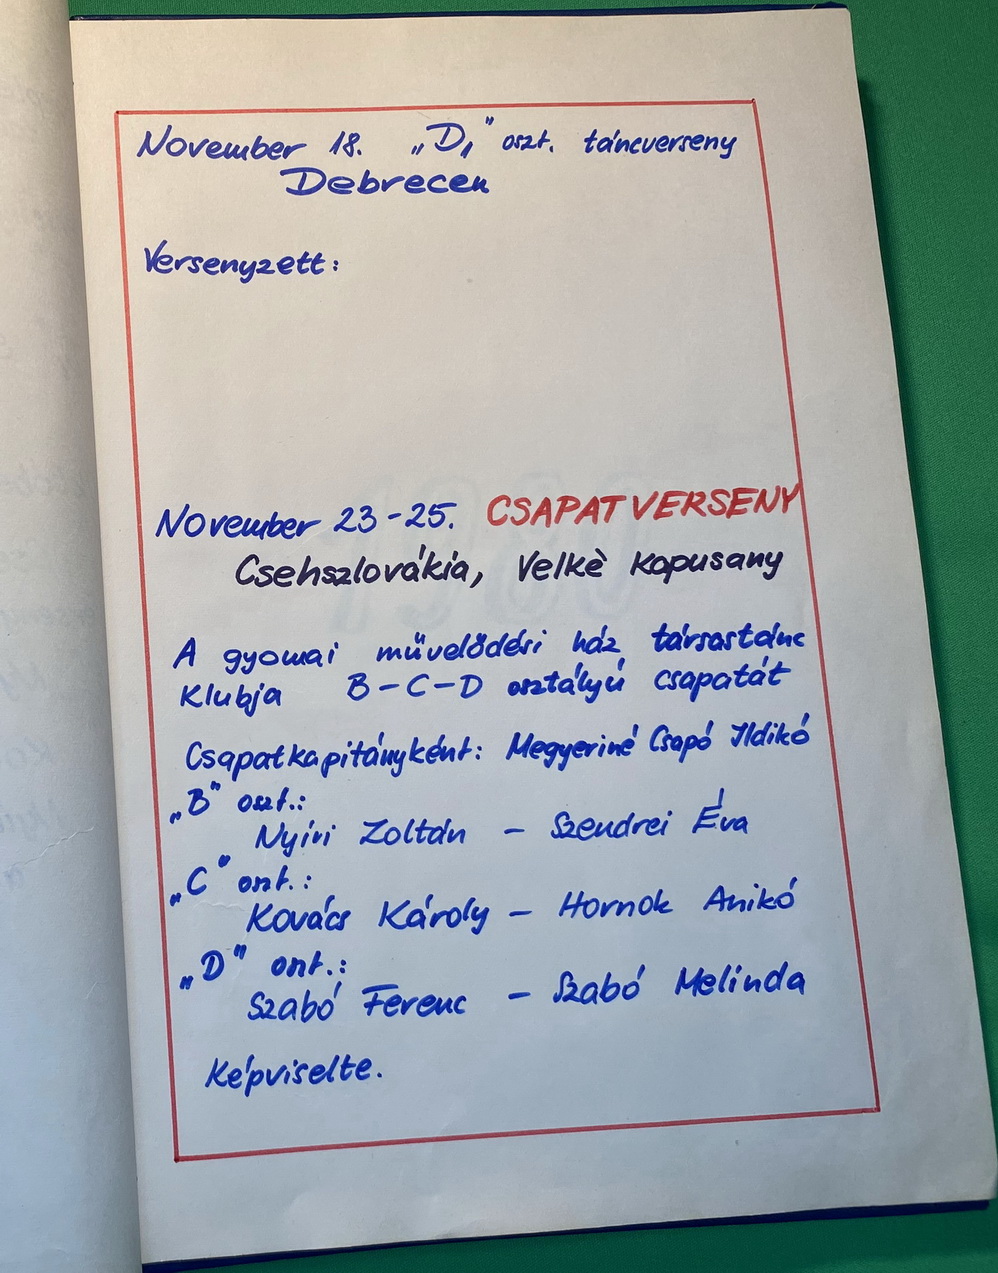 November 18. „D₁" oszt. táncverseny
Debrecen
Versenyzett:
November 23-25. CSAPATVERSENY
Csehszlovákia, Velkè Kapusany
A gyomai müvelődési ház társastánc
Klubja B-C-D osztályú csapatát
Csapatkapitányként: Megyeriné Csapó Ildikó
„B" oszt.:
Nyíri Zoltán - Szendrei Éva
„C" oszt.:
Kovács Károly - Hornok Anikó
„D" oszt.:
Szabó Ferenc - Szabó Melinda
Képviselte.